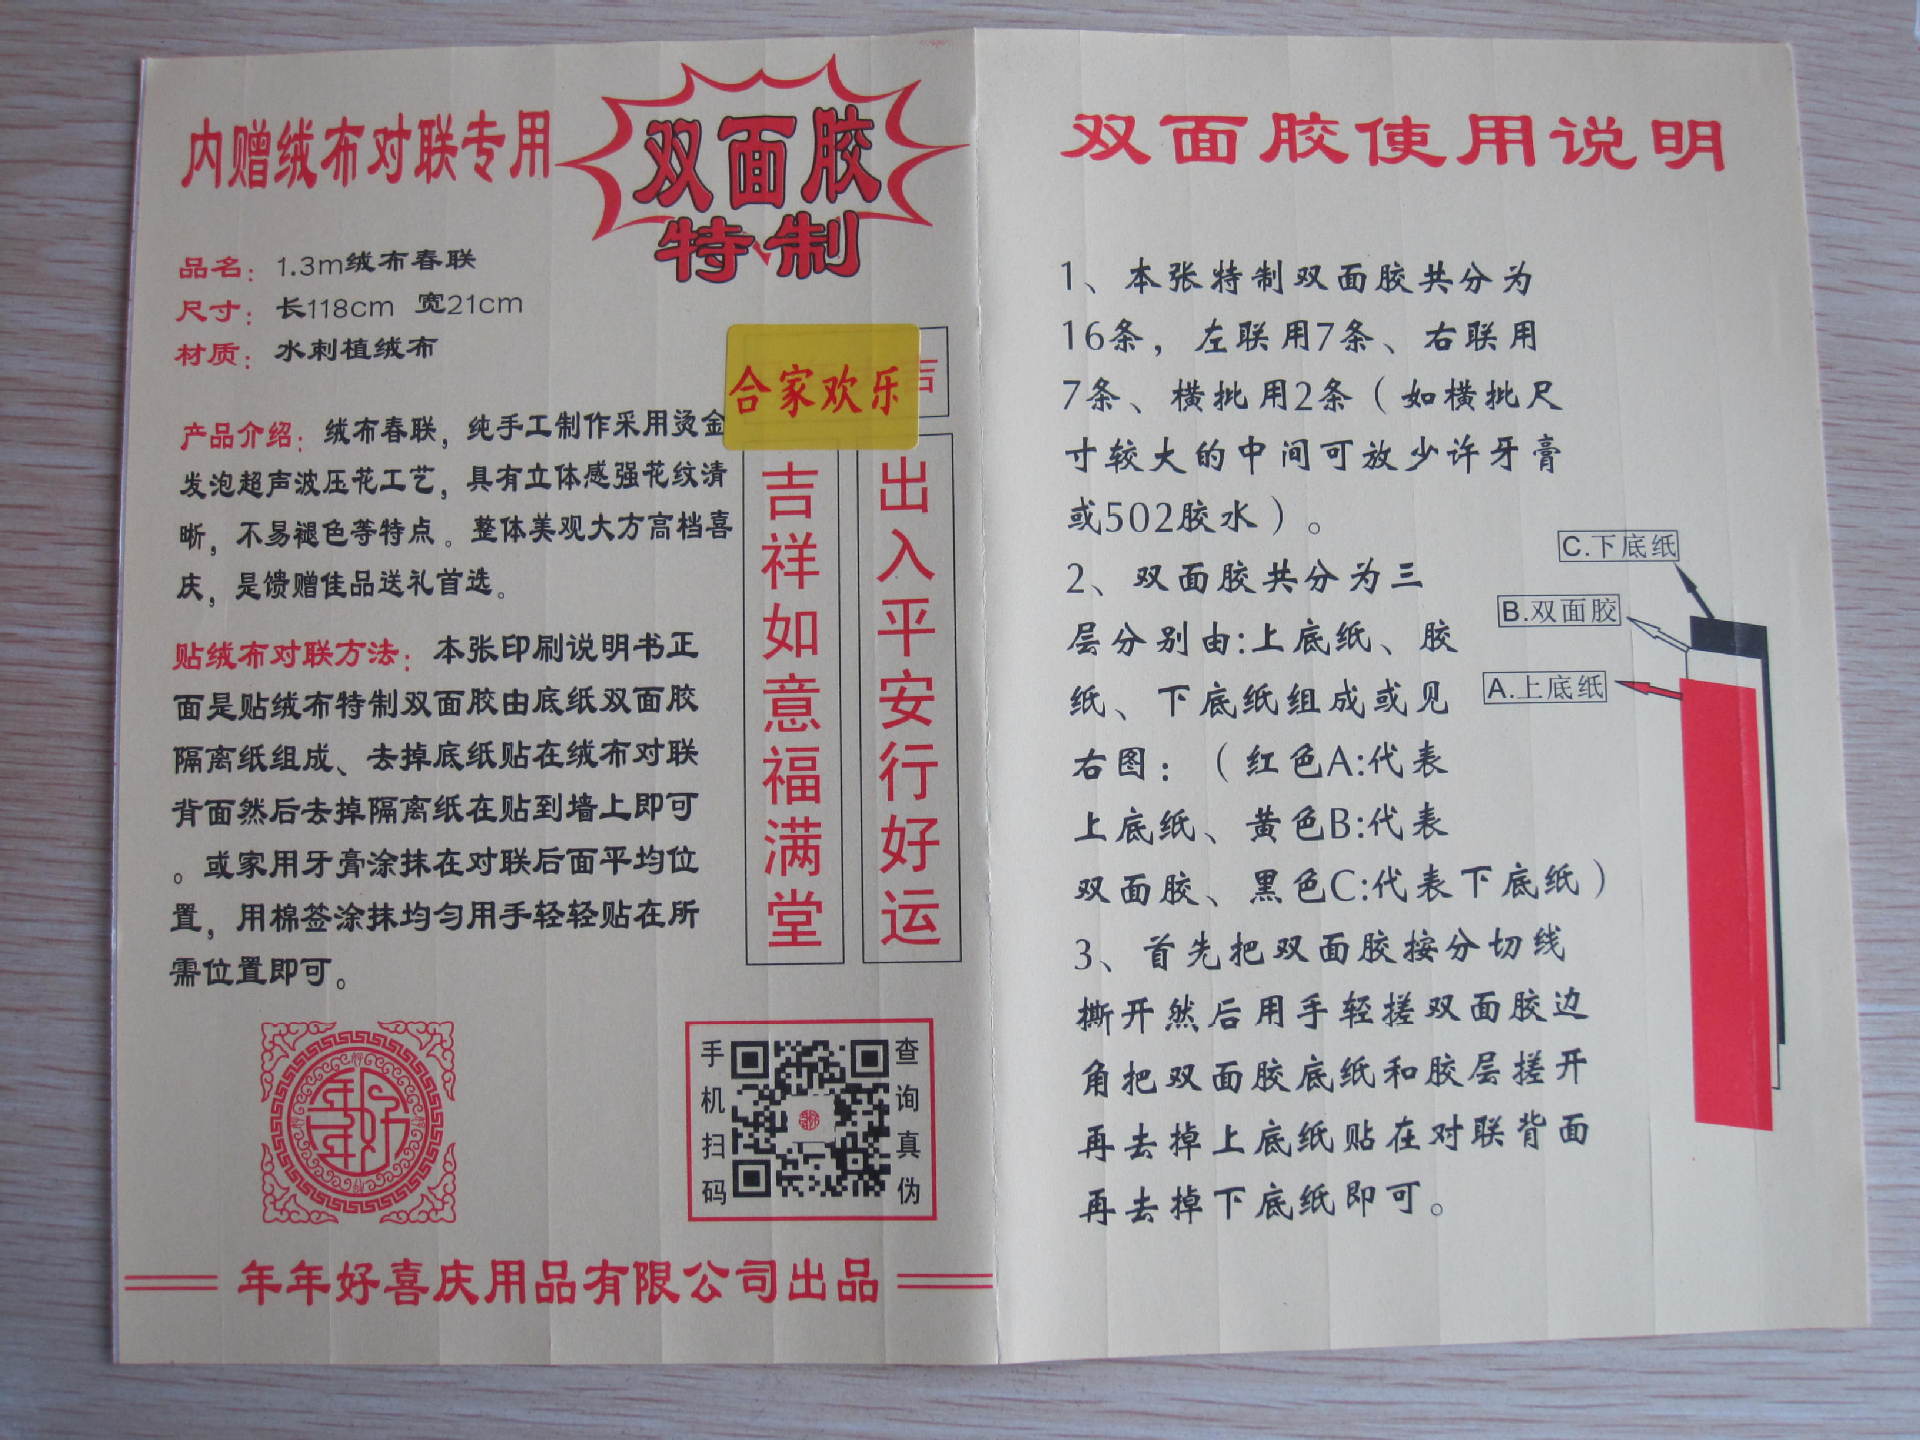 内赠绒布对联专用
双面胶
特制
品名：1.3m绒布春联
尺寸：长118cm 宽21cm
材质：水刺植绒布
产品介绍：绒布春联，纯手工制作采用烫金
发泡超声波压花工艺，具有立体感强花纹清
晰，不易褪色等特点。整体美观大方高档喜
庆，是馈赠佳品送礼首选。
贴绒布对联方法：本张印刷说明书正
面是贴绒布特制双面胶由底纸双面胶
隔离纸组成、去掉底纸贴在绒布对联
背面然后去掉隔离纸在贴到墙上即可
。或家用牙膏涂抹在对联后面平均位
置，用棉签涂抹均匀用手轻轻贴在所
需位置即可。
合家欢乐
吉祥如意福满堂
出入平安行好运
手机扫码
查询真伪
年年好喜庆用品有限公司出品
双面胶使用说明
1、本张特制双面胶共分为
16条，左联用7条、右联用
7条、横批用2条（如横批尺
寸较大的中间可放少许牙膏
或502胶水）。
2、双面胶共分为三
层分别由:上底纸、胶
纸、下底纸组成或见
右图：（红色A:代表
上底纸、黄色B:代表
双面胶、黑色C:代表下底纸）
3、首先把双面胶按分切线
撕开然后用手轻搓双面胶边
角把双面胶底纸和胶层搓开
再去掉上底纸贴在对联背面
再去掉下底纸即可。
C.下底纸
B.双面胶
A.上底纸